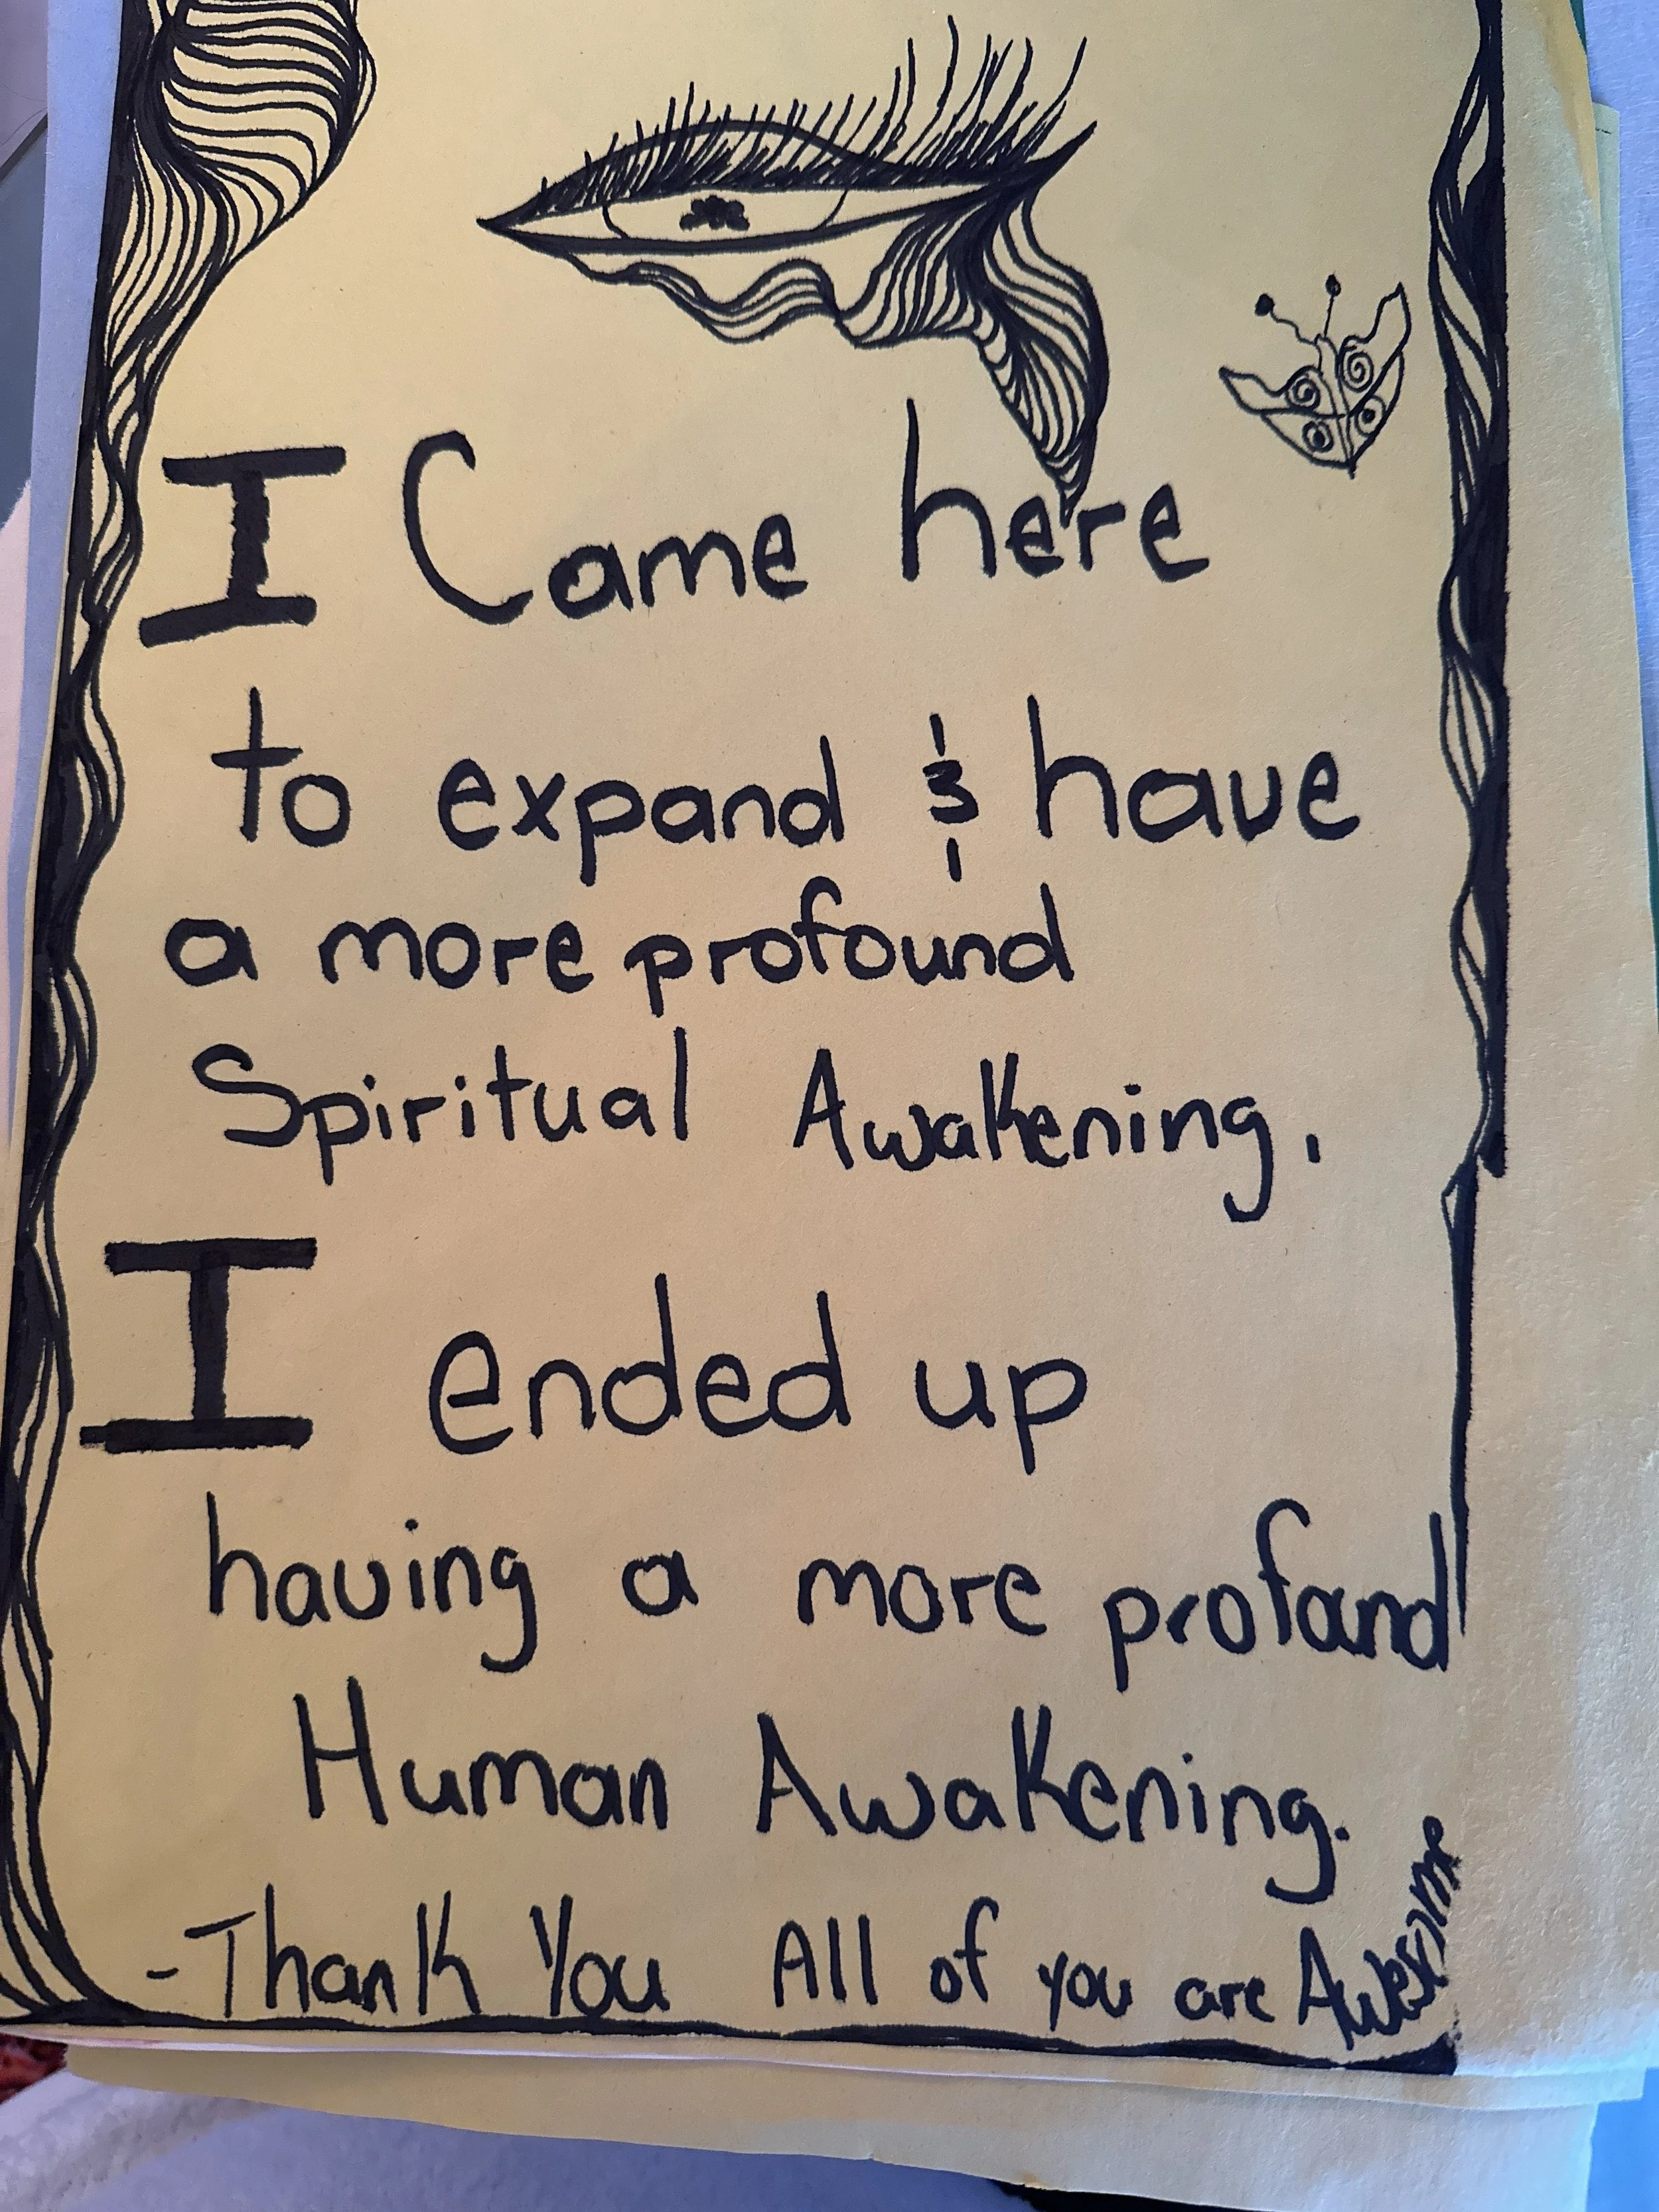 I Came here
to expand & have
a more profound
Spiritual Awakening.
I ended up
having a more profand
Human Awakening.
-Thank You All of you are Awesome